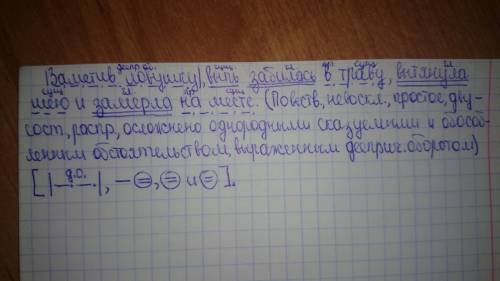 дееприч. об. сущ. гл. пр. сущ. гл.
Заметив ловушку|, выпь забилась в траву, вытянула
сущ. гл. пр. сущ.
шею и замерла на месте. (Повеств, невоскл., простое, дву-
сост, распр, осложнено однородными сказуемыми и обосо-
бленным обстоятельством, выраженным дееприч. оборотом)
д.о.
[|_._._.|, — =, = и =].